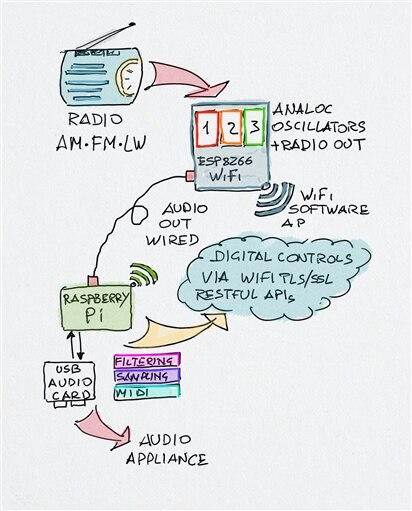 RADIO
AM·FM·LW
1 2 3
ESP8266
WiFi
ANALOG
OSCILLATORS
+RADIO OUT
WiFi
SOFTWARE
AP
AUDIO
OUT
WIRED
DIGITAL CONTROLS
VIA WIFI TLS/SSL
RESTFUL APIs
RASPBERRY
Pi
USB
AUDIO
CARD
FILTERING
SAMPLING
MIDI
AUDIO
APPLIANCE